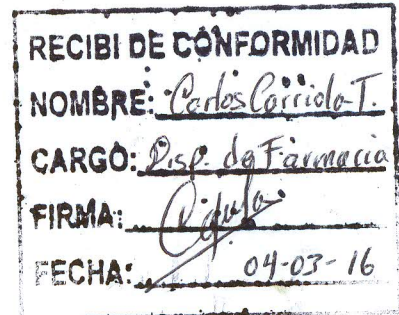 RECIBI DE CONFORMIDAD
NOMBRE: Carlos Corrido T.
CARGO: Disp. de Farmacia
FIRMA:
FECHA: 04-03-16